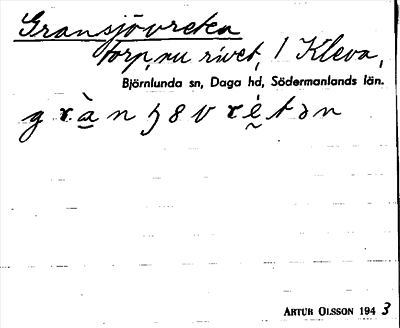 Gransjövreten
torp, nu rivet, / Kleva,
Björnlunda sn, Daga hd, Södermanlands län.
ARTUR OLSSON 1943